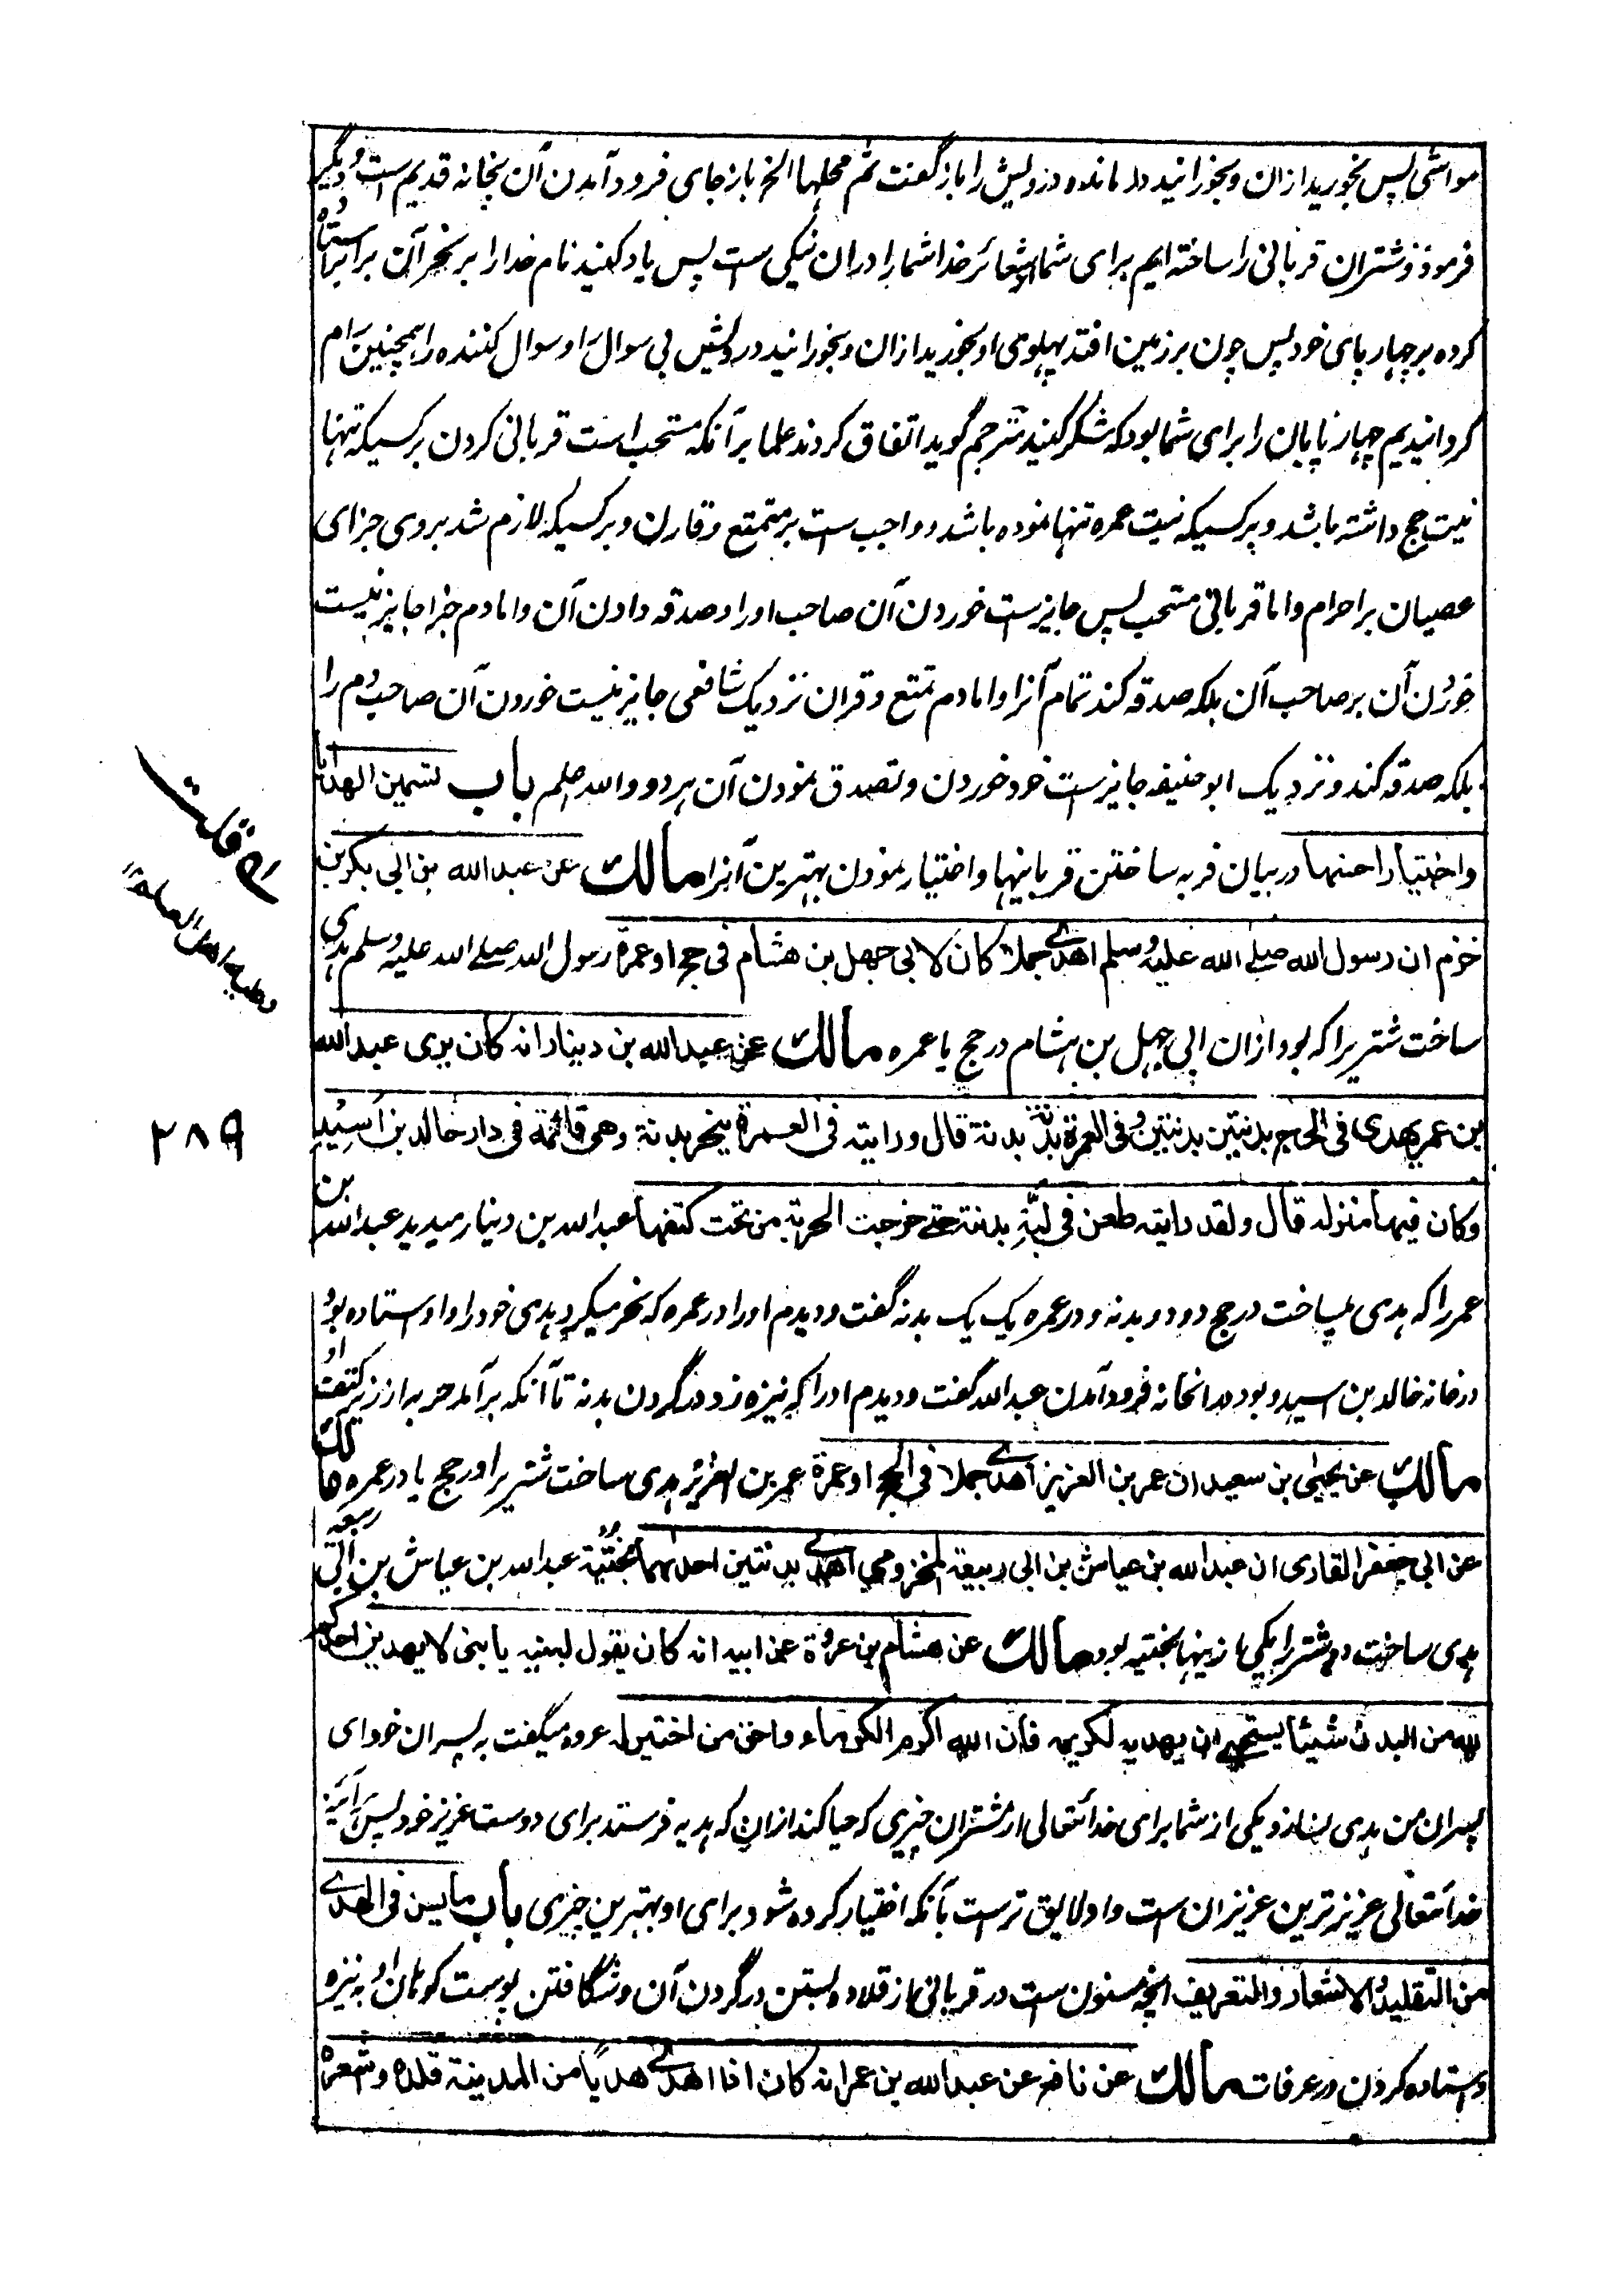 مواشی پس بخورید ازان و بخورانید درمانده درویش را باز گفت ثم محلها الخ باز جای فرود آمدن آن بخانه قدیم است و دیگر
فرموده و شتران قربانی را ساخته ایم برای شما از شعائر خدا شما را دران نیکی ست پس یاد کنید نام خدا را بر نحر آن برابر استاده
کرده بر چهار پای خود پس چون بر زمین افتد پهلوی او بخورید ازان و بخورانید درویش بی سوال را و سوال کننده را همچنین رام
گردانیدیم چهارپایان را برای شما بود که شکر کنید مترجم گوید اتفاق کردند علما بر آنکه مستحب است قربانی کردن بر کسیکه تنها
نیت حج داشته باشد و بر کسیکه نیت عمره تنها نموده باشد و واجب ست بر متمتع و قارن و بر کسیکه لازم شد بر وی جزای
عصیان بر احرام و اما قربانی مستحب پس جایز ست خوردن آن صاحب او را و صدقه دادن آن و اما دم جزا جایز نیست
خوردن آن بر صاحب آن بلکه صدقه کند تمام آنرا و اما دم تمتع و قران نزدیک شافعی جایز نیست خوردن آن صاحب دم را
بلکه صدقه کند و نزدیک ابو حنیفه جایز ست خود خوردن و تصدق نمودن آن هر دو والله اعلم باب تسمین الهدایا
واختیار احسنها در بیان فربه ساختن قربانیها و اختیار نمودن بهترین آنرا مالك عن عبد الله بن ابی بکر بن
حزم ان رسول الله صلے الله علیه وسلم اهدے جملا کان لابی جهل بن هشام فی حج او عمرة رسول الله صلے الله علیه وسلم هدی
ساخت شتریرا که بود ازان ابی جهل بن هشام در حج یا عمره مالك عن عبد الله بن دینار انه کان یری عبد الله
بن عمر یهدی فی الحج بدنتین بدنتین وفی العمرة بدنة بدنة قال ورایته فی العمرة ینحر بدنة وهی قائمة فی دار خالد بن اسید
وکان فیها منزله قال ولقد رایته طعن فی لبة بدنته حتے خرجت الحربة من تحت کتفها عبد الله بن دینار میدید عبد الله بن
عمر را که هدی میساخت در حج دو دو بدنه و در عمره یک یک بدنه گفت و دیدم او را در عمره که نحر میکرد هدی خود را و او ستاده بود
در خانه خالد بن اسید و بود درانخانه فرود آمدن عبد الله گفت و دیدم او را که نیزه زد در گردن بدنه تا آنکه بر آمد حربه از زیر کتف او
مالك عن یحیی بن سعید ان عمر بن العزیز اهدے جملا فی الحج او عمرة عمر بن العزیز هدی ساخت شتریرا در حج یا در عمره مالك
عن ابی جعفر القاری ان عبد الله بن عیاش بن ابی ربیعة المخزومی اهدے بدنتین احدٰهما بختیة عبد الله بن عیاش بن ابی ربیعه
هدی ساخت دو شتر را یکی ازینها بختیه بود مالك عن هشام بن عروة عن ابیه انه کان یقول لبنیه یا بنی لا یهدین احدکم
لله من البدن شیئا یستحیی ان یهدیه لکریمه فان الله اکرم الکرماء واحق من اختیر له عروه میگفت به پسران خود ای
پسران من هدی نسازد یکی از شما برای خدا تعالی از شتران چیزی که حیا کند ازان که هدیه فرستد برای دوست عزیز خود پس هر آئینه
خدا تعالی عزیز ترین عزیزان ست و او لایق تر ست بآنکه اختیار کرده شود برای او بهترین چیزی باب ما یسن فی الهدے
من التقلید والاشعار والتعریف انچه مسنون ست در قربانی از قلاده بستن در گردن آن و شگافتن پوست کوهان او به نیزه
و استاده کردن در عرفات مالك عن نافع عن عبد الله بن عمر انه کان اذا اهدے هدیا من المدینة قلده واشعره
۲۸۹